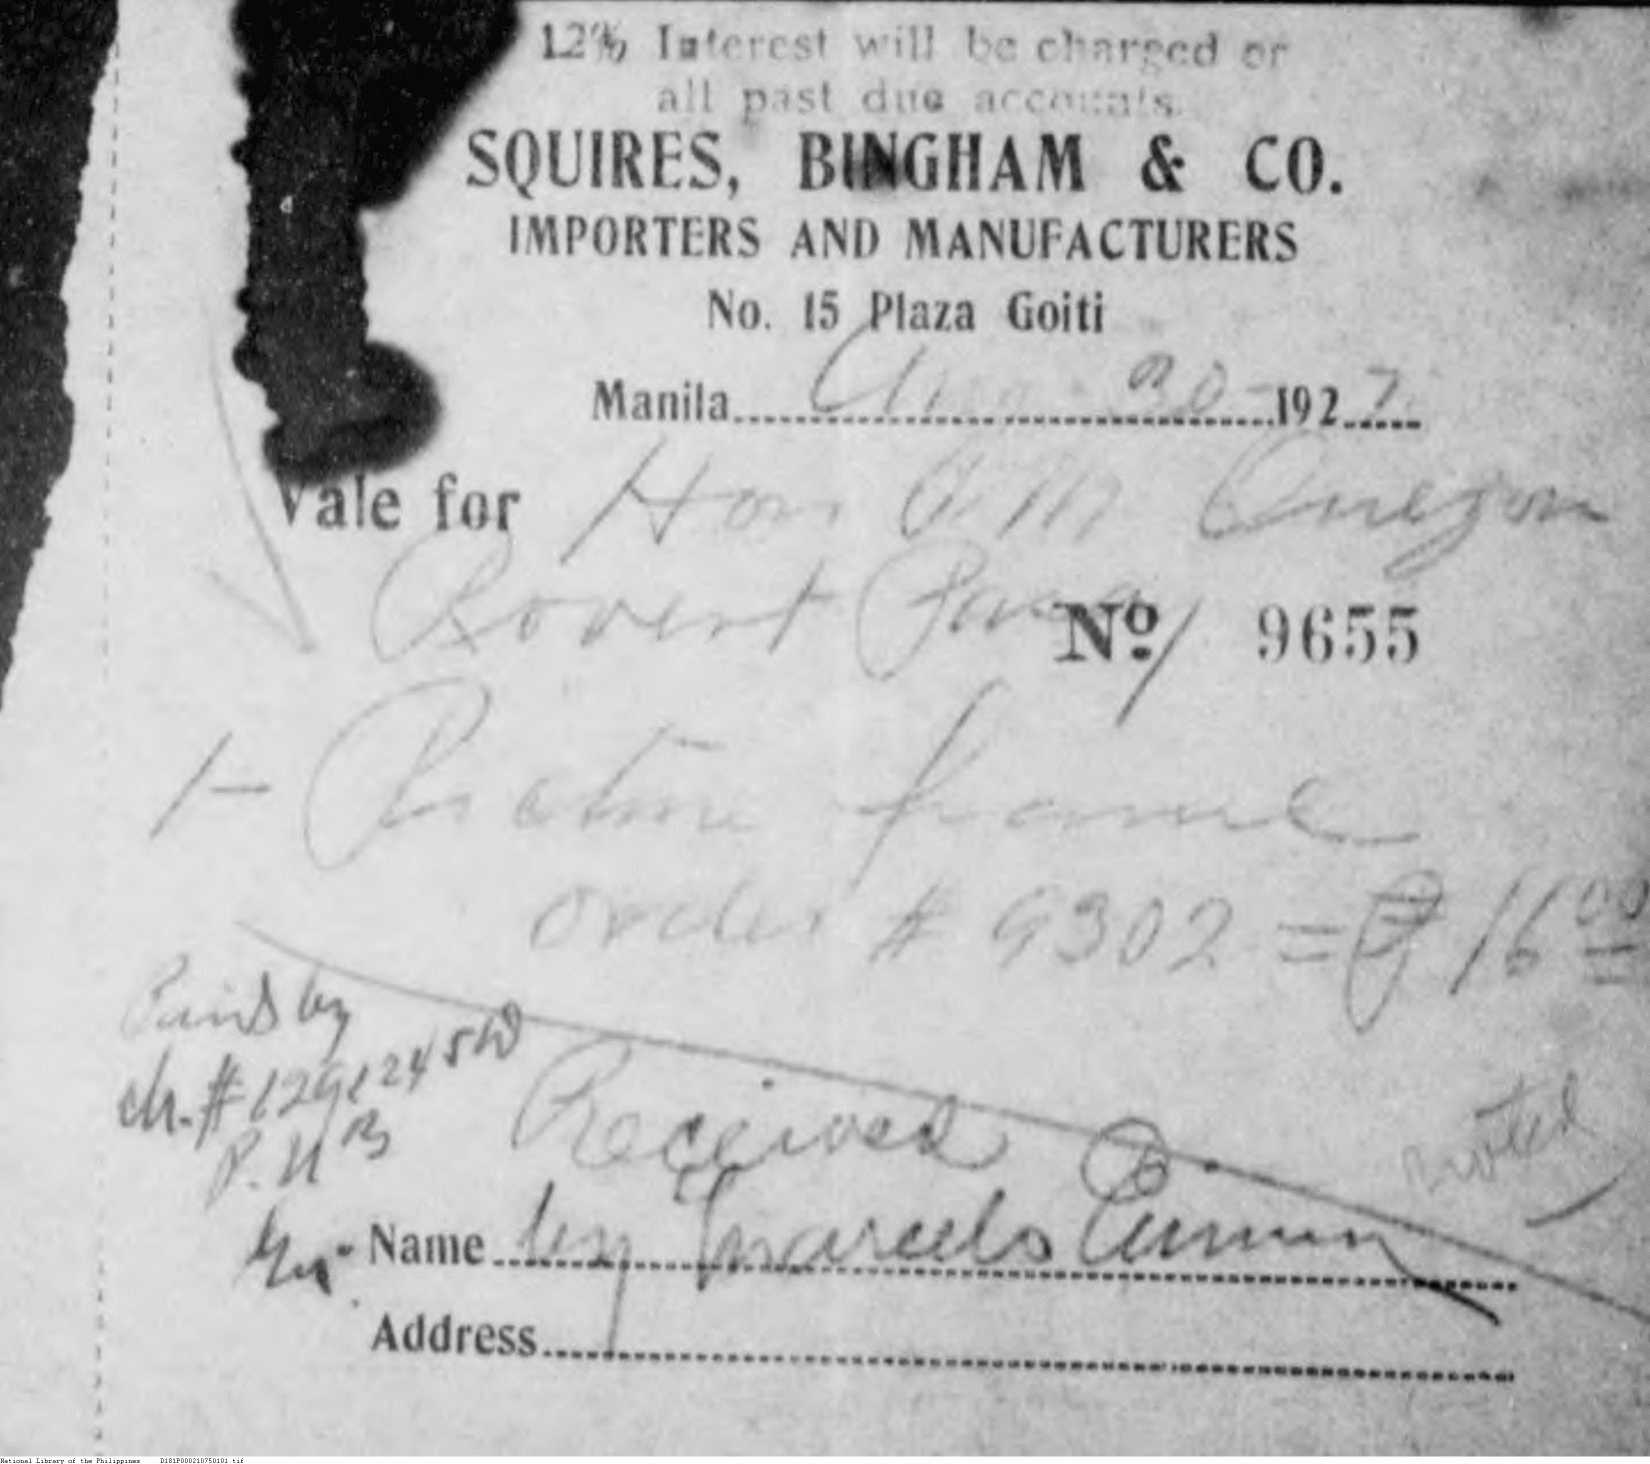 12% Interest will be charged or
all past due accounts.
SQUIRES, BINGHAM & CO.
IMPORTERS AND MANUFACTURERS
No. 15 Plaza Goiti
Manila 30 - 1927
Vale for Hon
No 9655
1 - Picture frame
order # 9302 = ₱ 16 00
Paid by
ch. # 129124 5W
P. N B
Received
noted
Name by Marcelo
Address
National Library of the Philippines D181P000210750101 tif